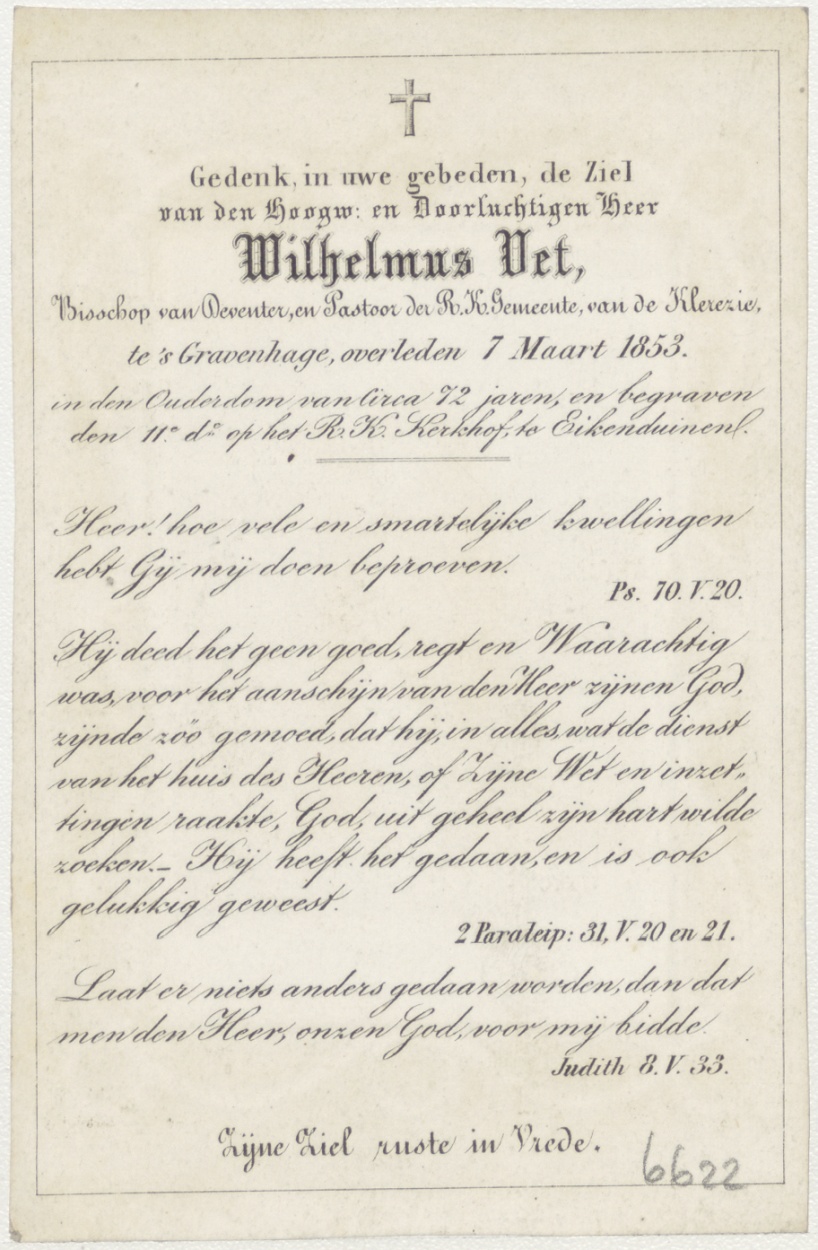 Gedenk, in uwe gebeden, de Ziel
van den Hoogw: en Doorluchtigen Heer
Wilhelmus Vet,
Bisschop van Deventer, en Pastoor der R. K. Gemeente, van de Klerezie,
te 's Gravenhage, overleden 7 Maart 1853.
in den Ouderdom van Circa 72 jaren, en begraven
den 11e do op het R. K. Kerkhof, te Eikenduinen.
Heer! hoe vele en smartelijke kwellingen
hebt Gij mij doen beproeven.
Ps. 70. V. 20.
Hij deed het geen goed, regt en Waarachtig
was, voor het aanschijn van den Heer zijnen God,
zijnde zóó gemoed, dat hij, in alles, wat de dienst
van het huis des Heeren, of Zijne Wet en inzet„
tingen raakte, God, uit geheel zijn hart wilde
zoeken. _ Hij heeft het gedaan, en is ook
gelukkig geweest.
2 Paraleip: 31, V. 20 en 21.
Laat er niets anders gedaan worden, dan dat
men den Heer, onzen God, voor mij bidde.
Judith 8. V. 33.
Zijne Ziel ruste in Vrede.
6622